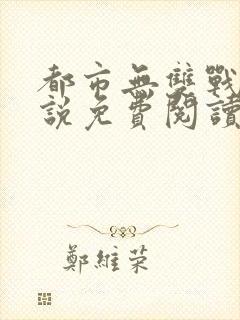 都市無雙戰
說免費閱讀
鄭維榮